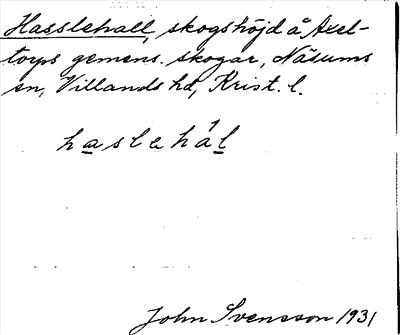 Hasslehall, skogshöjd å Axel-
torps gemens. skogar, Näsums
sn, Villands hd, Krist. l.
haslahál
John Svensson 1931